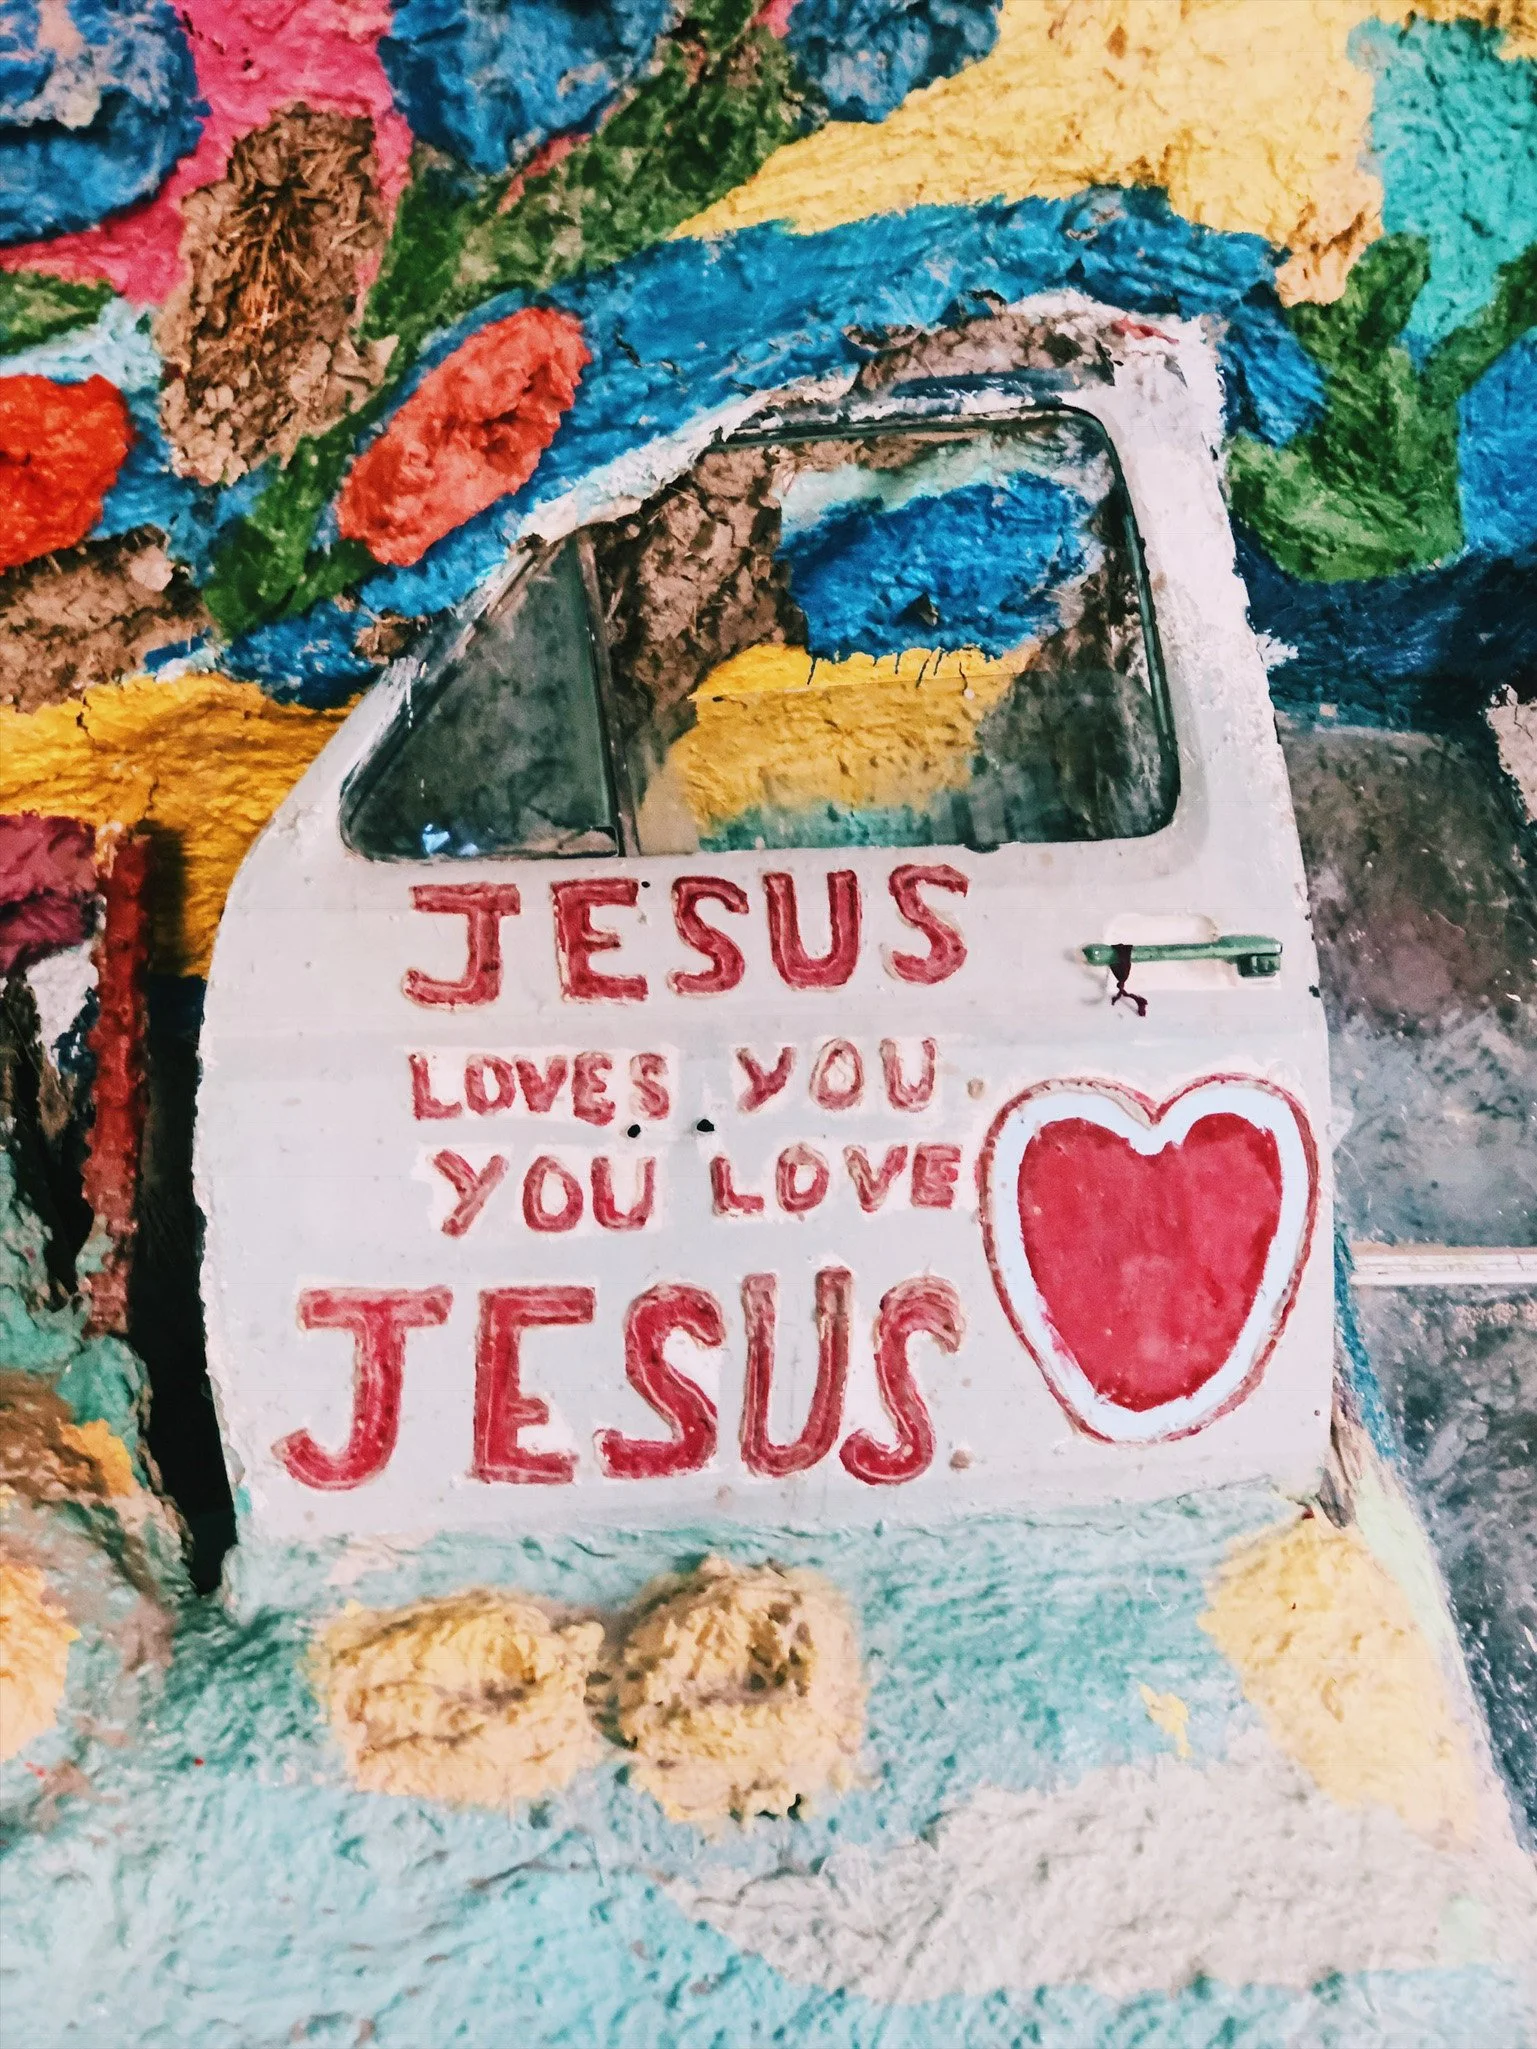 JESUS
LOVES YOU
YOU LOVE
JESUS